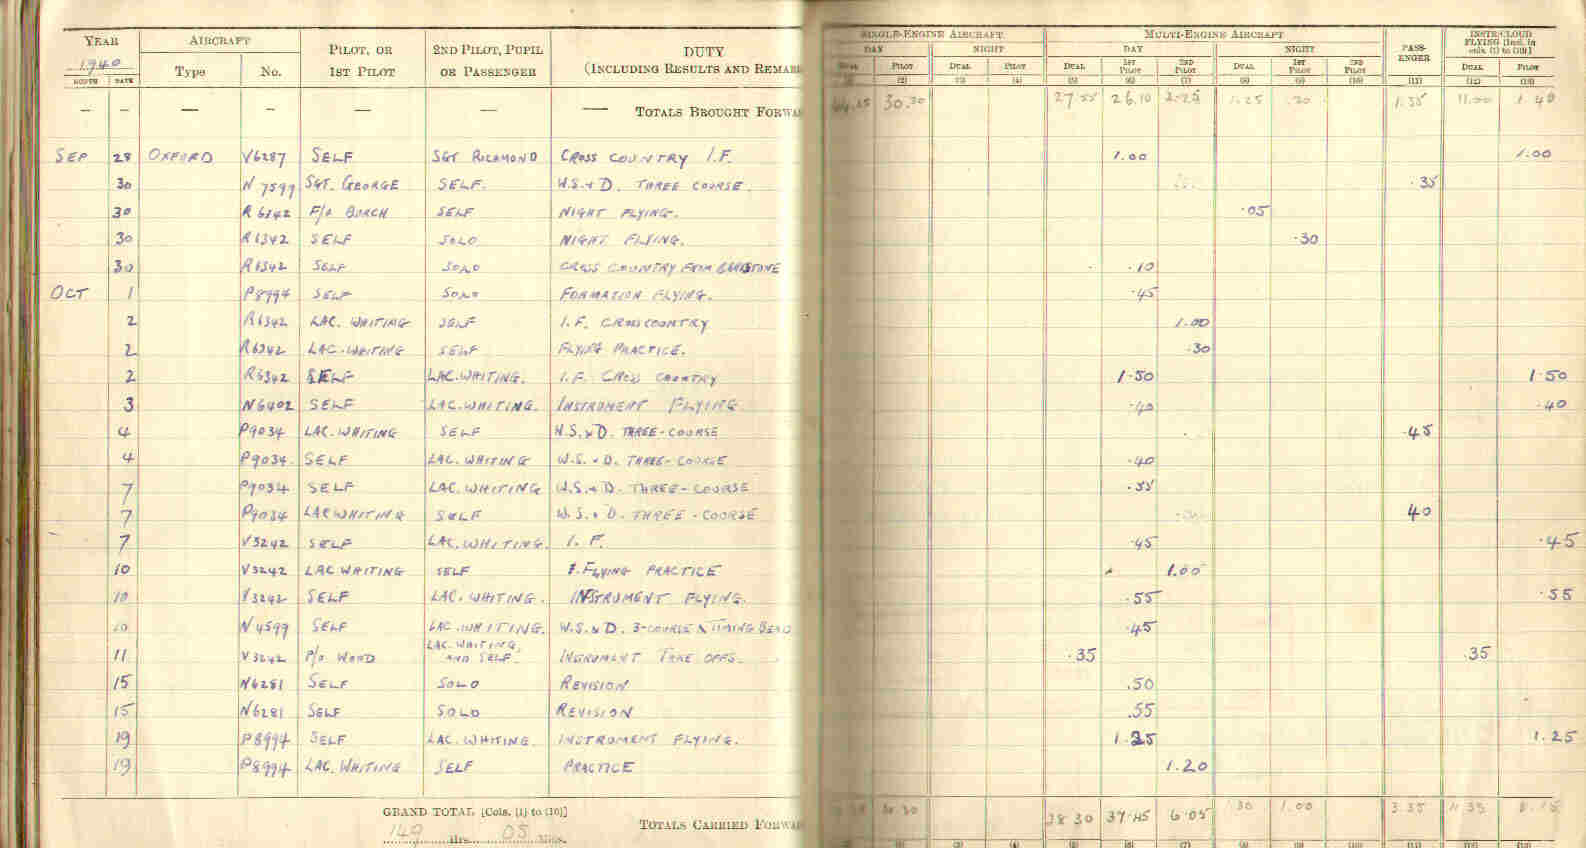 YEAR AIRCRAFT PILOT, OR 2ND PILOT, PUPIL DUTY SINGLE-ENGINE AIRCRAFT MULTI-ENGINE AIRCRAFT PASS- INSTR/CLOUD
1940 Type No. 1ST PILOT OR PASSENGER (INCLUDING RESULTS AND REMAR DAY NIGHT DAY NIGHT ENGER FLYING [Incl. in cols. (1) to (10)]
MONTH DATE DUAL PILOT DUAL PILOT DUAL 1ST PILOT 2ND PILOT DUAL 1ST PILOT 2ND PILOT DUAL PILOT
(2) (3) (4) (5) (6) (7) (8) (9) (10) (11) (12) (13)
— — — — — — — TOTALS BROUGHT FORWA 30.30 27.55 26.10 2.25 1.25 .30 1.35 11.00 1.40
SEP 28 OXFORD V6287 SELF SGT RICHMOND CROSS COUNTRY I.F. 1.00 1.00
30 N 7599 SGT. GEORGE SELF. W.S.+D. THREE COURSE. .35
30 R 6342 F/O BURCH SELF NIGHT FLYING. .05
30 R6342 SELF SOLO NIGHT FLYING. .30
30 R6342 SELF SOLO CROSS COUNTRY FROM .10
OCT 1 P8994 SELF SOLO FORMATION FLYING. .45
2 R6342 LAC. WHITING SELF I.F. CROSSCOUNTRY 1.00
2 R6342 LAC. WHITING SELF FLYING PRACTICE. .30
2 R6342 SELF LAC. WHITING. I.F. CROSS COUNTRY 1.50 1.50
3 N6402 SELF LAC. WHITING. INSTRUMENT FLYING .40 .40
4 P9034 LAC. WHITING SELF W.S.+D. THREE-COURSE .45
4 P9034. SELF LAC. WHITING W.S.+D. THREE-COURSE .40
7 P9034 SELF LAC. WHITING W.S.+D. THREE-COURSE .55
7 P9034 LAC WHITING SELF W.S.+D. THREE-COURSE 40
7 V3242 SELF LAC. WHITING. I. F. .45 .45
10 V3242 LAC WHITING SELF FLYING PRACTICE 1.00
10 V3242 SELF LAC. WHITING. INSTRUMENT FLYING. .55 .55
10 N4599 SELF LAC. WHITING. W.S.+D. 3-COURSE & TIMING BEAD .45
11 V3242 P/O WOOD LAC. WHITING, AND SELF. INSRUMENT TAKE OFFS. .35 .35
15 N6281 SELF SOLO REVISION .50
15 N6281 SELF SOLO REVISION .55
19 P8994 SELF LAC. WHITING. INSTRUMENT FLYING. 1.25 1.25
19 P8994 LAC. WHITING SELF PRACTICE 1.20
GRAND TOTAL [Cols. (1) to (10)] 30.30 28.30 37.45 6.05 1.30 1.00 3.35 11.35 8.15
149 Hrs. 05 Mins. TOTALS CARRIED FORWA